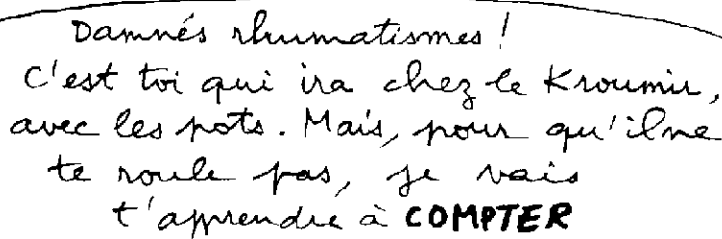 Damnés rhumatismes!
C'est toi qui ira chez le Kroumir,
avec les pots. Mais, pour qu'il ne
te roule pas, je vais
t'apprendre à COMPTER